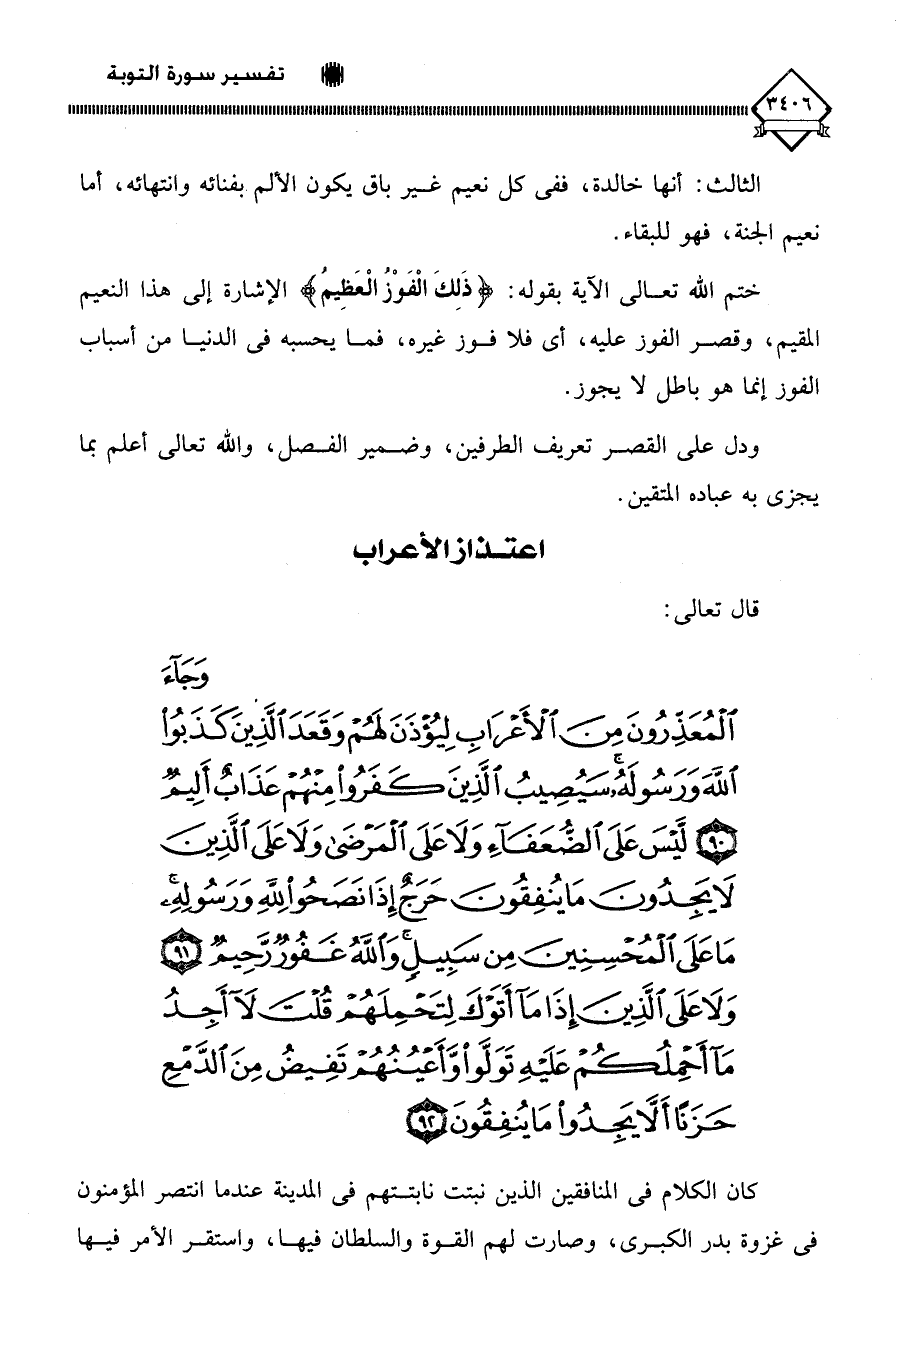 تفسير سورة التوبة
٣٤٠٦
الثالث: أنها خالدة، ففى كل نعيم غير باق يكون الألم بفنائه وانتهائه، أما
نعيم الجنة، فهو للبقاء.
ختم الله تعالى الآية بقوله: ﴿ذَلِكَ الْفَوْزُ الْعَظِيمُ﴾ الإشارة إلى هذا النعيم
المقيم، وقصر الفوز عليه، أى فلا فوز غيره، فما يحسبه فى الدنيا من أسباب
الفوز إنما هو باطل لا يجوز.
ودل على القصر تعريف الطرفين، وضمير الفصل، والله تعالى أعلم بما
يجزى به عباده المتقين.
اعتذاز الأعراب
قال تعالى:
وَجَآءَ
ٱلْمُعَذِّرُونَ مِنَ ٱلْأَعْرَابِ لِيُؤْذَنَ لَهُمْ وَقَعَدَ ٱلَّذِينَ كَذَبُوا۟
ٱللَّهَ وَرَسُولَهُۥ ۚ سَيُصِيبُ ٱلَّذِينَ كَفَرُوا۟ مِنْهُمْ عَذَابٌ أَلِيمٌ
﴿٩٠﴾ لَّيْسَ عَلَى ٱلضُّعَفَآءِ وَلَا عَلَى ٱلْمَرْضَىٰ وَلَا عَلَى ٱلَّذِينَ
لَا يَجِدُونَ مَا يُنفِقُونَ حَرَجٌ إِذَا نَصَحُوا۟ لِلَّهِ وَرَسُولِهِۦ ۚ
مَا عَلَى ٱلْمُحْسِنِينَ مِن سَبِيلٍ ۚ وَٱللَّهُ غَفُورٌ رَّحِيمٌ ﴿٩١﴾
وَلَا عَلَى ٱلَّذِينَ إِذَا مَآ أَتَوْكَ لِتَحْمِلَهُمْ قُلْتَ لَآ أَجِدُ
مَآ أَحْمِلُكُمْ عَلَيْهِ تَوَلَّوا۟ وَّأَعْيُنُهُمْ تَفِيضُ مِنَ ٱلدَّمْعِ
حَزَنًا أَلَّا يَجِدُوا۟ مَا يُنفِقُونَ ﴿٩٢﴾
كان الكلام فى المنافقين الذين نبتت نابتتهم فى المدينة عندما انتصر المؤمنون
فى غزوة بدر الكبرى، وصارت لهم القوة والسلطان فيها، واستقر الأمر فيها